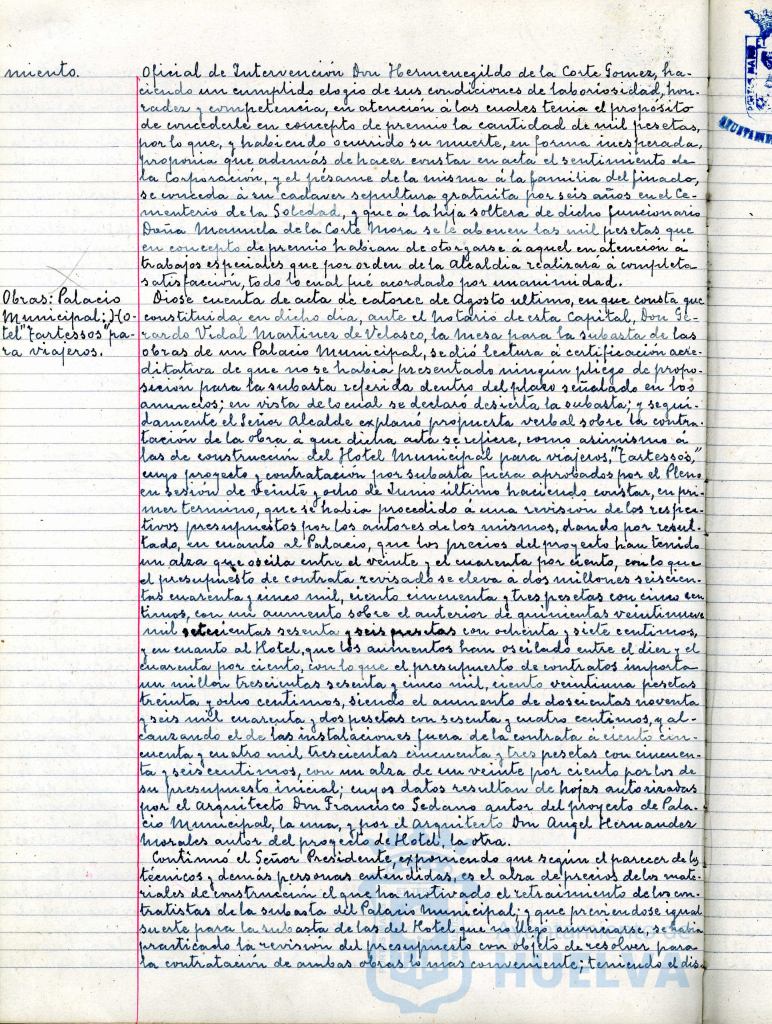 miento.
Oficial de Intervención Don Hermenegildo de la Corte Gomez, ha-
ciendo un cumplido elogio de sus condiciones de laboriosidad, hon-
radez y competencia, en atención á las cuales tenia el propósito
de concederle en concepto de premio la cantidad de mil pesetas,
por lo que, y habiendo ocurrido su muerte, en forma inesperada,
proponia que además de hacer constar en acta el sentimiento de
la Corporación, y el pésame de la misma á la familia del finado,
se conceda á su cadaver sepultura gratuita por seis años en el Ce-
menterio de la Soledad, y que á la hija soltera de dicho funcionario
Doña Manuela de la Corte Mora se le abonen las mil pesetas que
en concepto de premio habian de otorgarse á aquel en atención á
trabajos especiales que por orden de la Alcaldia realizará á completa
satisfacción, todo lo cual fué acordado por unanimidad.
Obras: Palacio
Municipal; Ho-
tel "Tartessos" pa-
ra viajeros.
Diose cuenta de acta de catorce de Agosto ultimo, en que consta que
constituida, en dicho dia, ante el notario de esta Capital, Don Ge-
rardo Vidal Martinez de Velasco, la mesa para la subasta de las
obras de un Palacio Municipal, se dió lectura á certificación acre-
ditativa de que no se habia presentado ningún pliego de propo-
sición para la subasta referida dentro del plazo señalado en los
anuncios; en vista de lo cual se declaró desierta la subasta; y segui-
damente el Señor Alcalde explanó propuesta verbal sobre la contra-
tación de la obra á que dicha acta se refiere, como asimismo á
las de construcción del Hotel Municipal para viajeros, "Tartessos,"
cuyo proyecto y contratación por subasta fuera aprobados por el Pleno
en sesión de veinte y ocho de Junio último haciendo constar, en pri-
mer termino, que se habia procedido á una revisión de los respec-
tivos presupuestos por los autores de los mismos, dando por resul-
tado, en cuanto al Palacio, que los precios del proyecto han tenido
un alza que oscila entre el veinte y el cuarenta por ciento, con lo que
el presupuesto de contrata revisado se eleva á dos millones seiscien-
tas cuarenta y cinco mil, ciento cincuenta y tres pesetas con cinco cen-
timos, con un aumento sobre el anterior de quinientas veintinueve
mil setecientas sesenta y seis pesetas con ochenta y siete centimos,
y en cuanto al Hotel, que los aumentos han oscilado entre el diez y el
cuarenta por ciento, con lo que el presupuesto de contratos importa
un millon trescientas sesenta y cinco mil, ciento veintiuna pesetas
treinta y ocho centimos, siendo el aumento de doscientas noventa
y seis mil cuarenta y dos pesetas con sesenta y cuatro centimos, y al-
canzando el de las instalaciones fuera de la contrata á ciento cin-
cuenta y cuatro mil trescientas cincuenta y tres pesetas con cincuen-
ta y seis centimos, con un alza de un veinte por ciento por los de
su presupuesto inicial; cuyos datos resultan de hojas autorizadas
por el Arquitecto Don Francisco Sedano autor del proyecto de Pala-
cio Municipal, la una, y por el Arquitecto Don Angel Hernandez
Morales autor del proyecto de Hotel, la otra.
Continuó el Señor Presidente, exponiendo que según el parecer de los
técnicos y demás personas entendidas, es el alza de precios de los mate-
riales de construcción el que ha motivado el retraimiento de los con-
tratistas de la subasta del Palacio Municipal; y que previendose igual
suerte para la subasta de las del Hotel que no llego anunciarse, se habia
practicado la revisión del presupuesto con objeto de resolver para
la contratación de ambas obras lo mas conveniente; teniendo el dis-
HUELVA